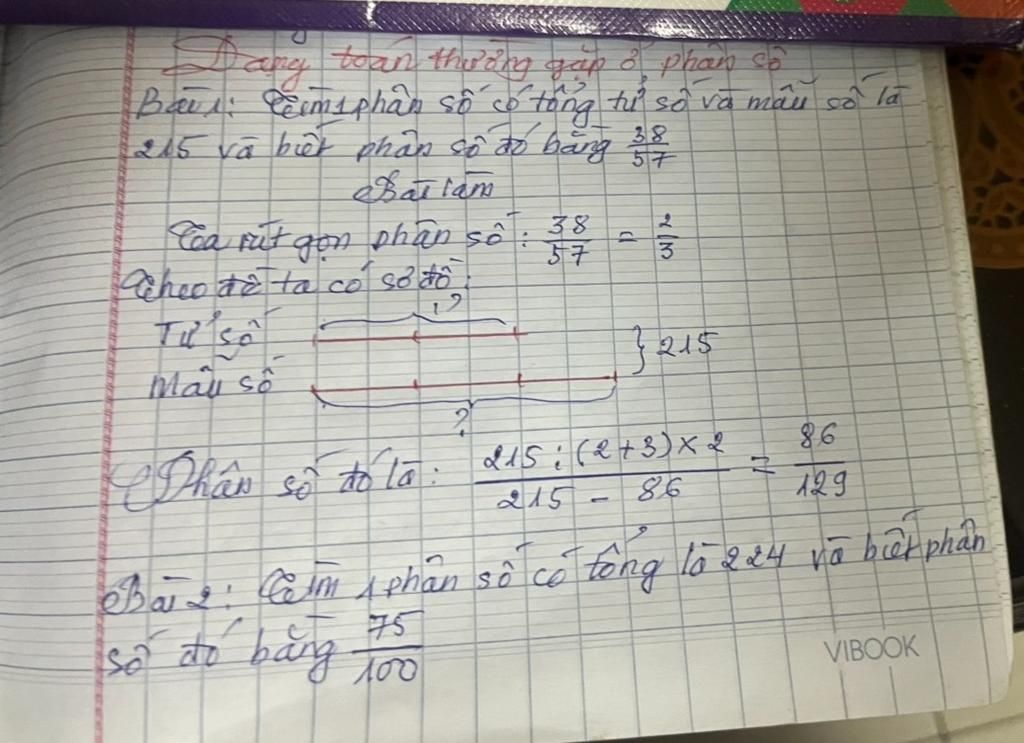 Dạng toán thường gặp ở phân số
Bài 1: Tìm 1 phân số có tổng tử số và mẫu số là
215 và biết phân số đó bằng 38/57
Bài làm
Ta rút gọn phân số: 38/57 = 2/3
Theo đề ta có sơ đồ:
?
Tử số
} 215
Mẫu số
?
Phân số đó là: 215 : (2+3) x 2 / 215 - 86 = 86/129
Bài 2: Tìm 1 phân số có tổng là 224 và biết phân
số đó bằng 75/100
VIBOOK